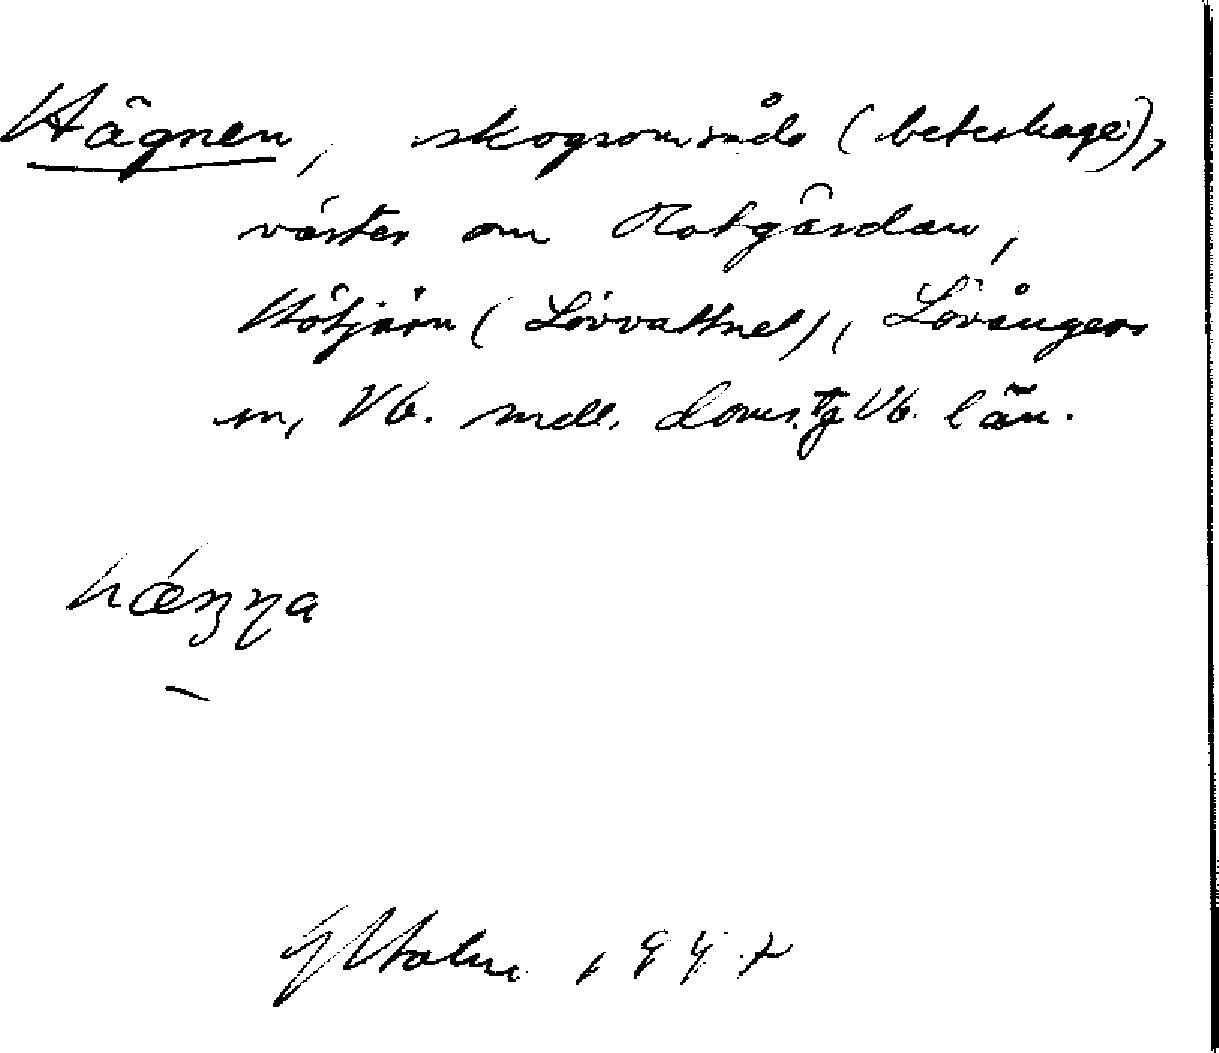 Hägnen, skogsområde (beteshage),
väster om Notgärdan,
Hötjärn (Lövvattnet), Lövångers
sn, Vb. mdl. doms. Vb. län.
G Holm 1947